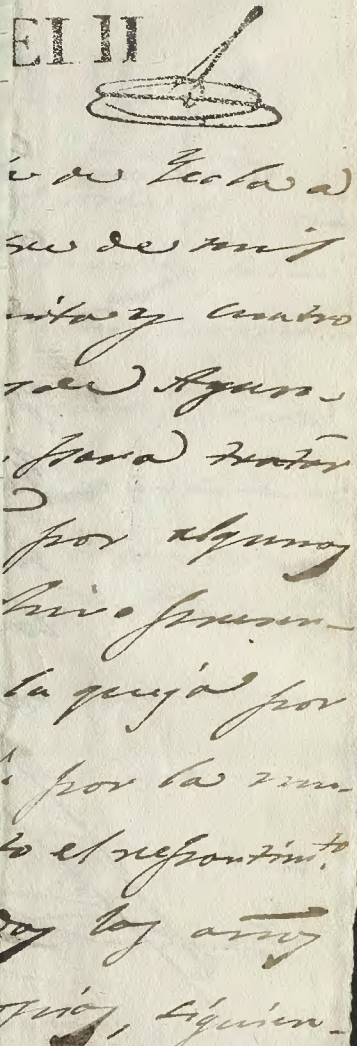 EI II
de Yecla a
bre de mil
enta y cuatro
de Ayun-
para tratar
por algunos
hizo presen-
la queja por
por la mu-
to el repartim.to
los años
, siguien-